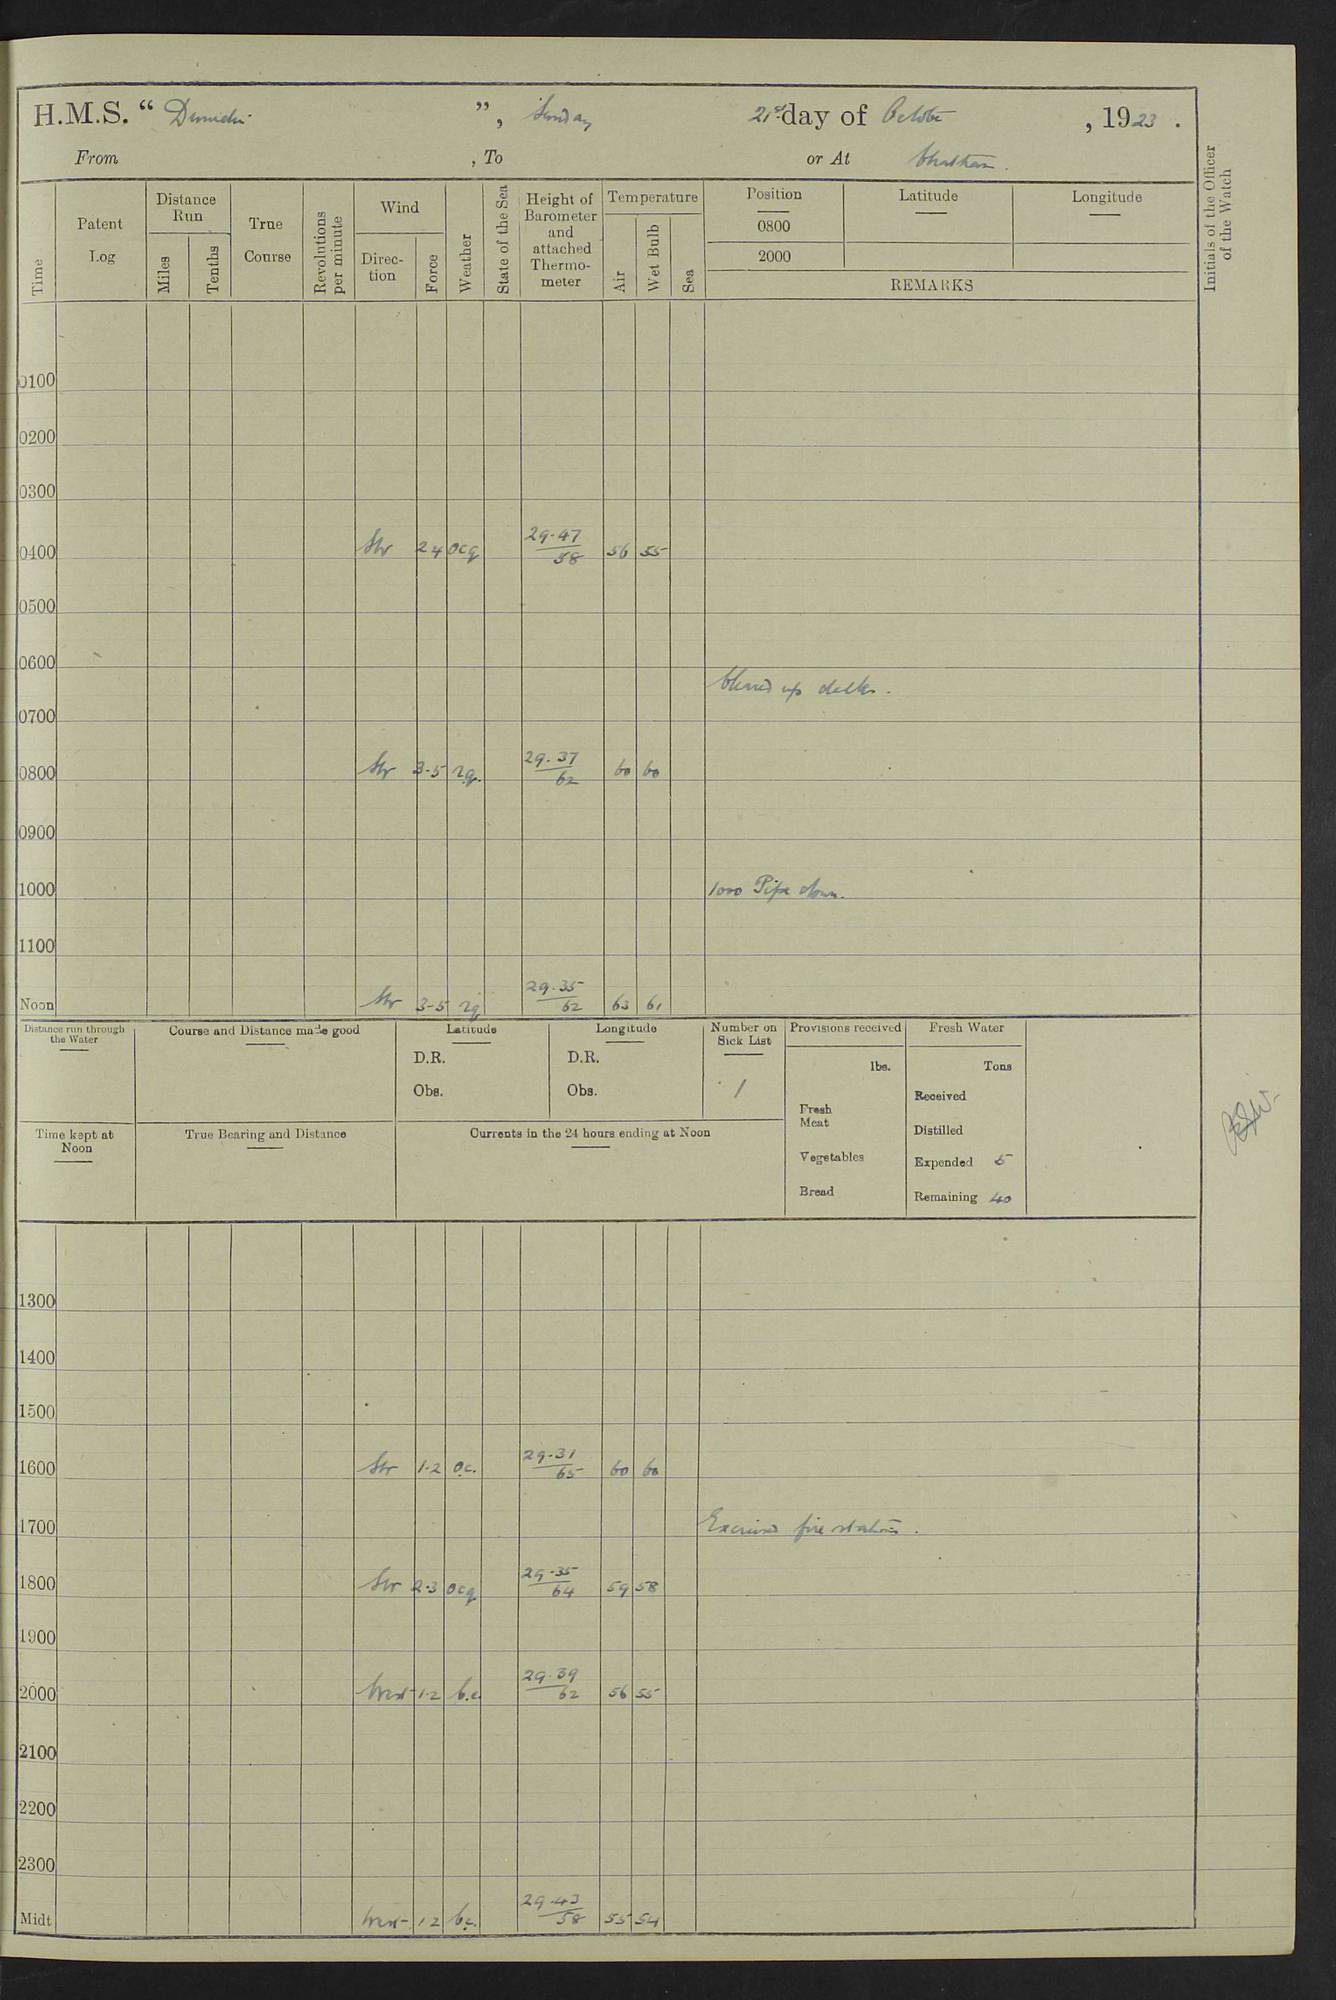 H.M.S. “ Dunedin ”, Sunday 21st day of October, 1923.
From , To or At Chatham.
Time
Patent Log
Distance Run
Miles
Tenths
True Course
Revolutions per minute
Wind
Direc-tion
Force
Weather
State of the Sea
Height of Barometer and attached Thermo-meter
Temperature
Air
Wet Bulb
Sea
Position Latitude Longitude
0800
2000
REMARKS
Initials of the Officer of the Watch
0100
0200
0300
0400 SW 2 4 ocq 29.47 58 56 55
0500
0600
Cleared up decks.
0700
0800 SW 3-5 rq. 29.37 62 60 60
0900
1000 1000 Pipe down.
1100
Noon SW 3-5 rq 29.35 62 63 61
Distance run through the Water
Course and Distance made good
Latitude
D.R.
Obs.
Longitude
D.R.
Obs.
Number on Sick List
1
Provisions received
lbs.
Fresh Meat
Vegetables
Bread
Fresh Water
Tons
Received
Distilled
Expended 5
Remaining 40
Time kept at Noon
True Bearing and Distance
Currents in the 24 hours ending at Noon
1300
1400
1500
1600 SW 1-2 o.c. 29.31 65 60 60
1700 Exercised fire stations.
1800 SW 2-3 ocq 29.35 64 59 58
1900
2000 West 1-2 b.c. 29.39 62 56 55
2100
2200
2300
Midt West 1 2 b.c. 29.43 58 55 54